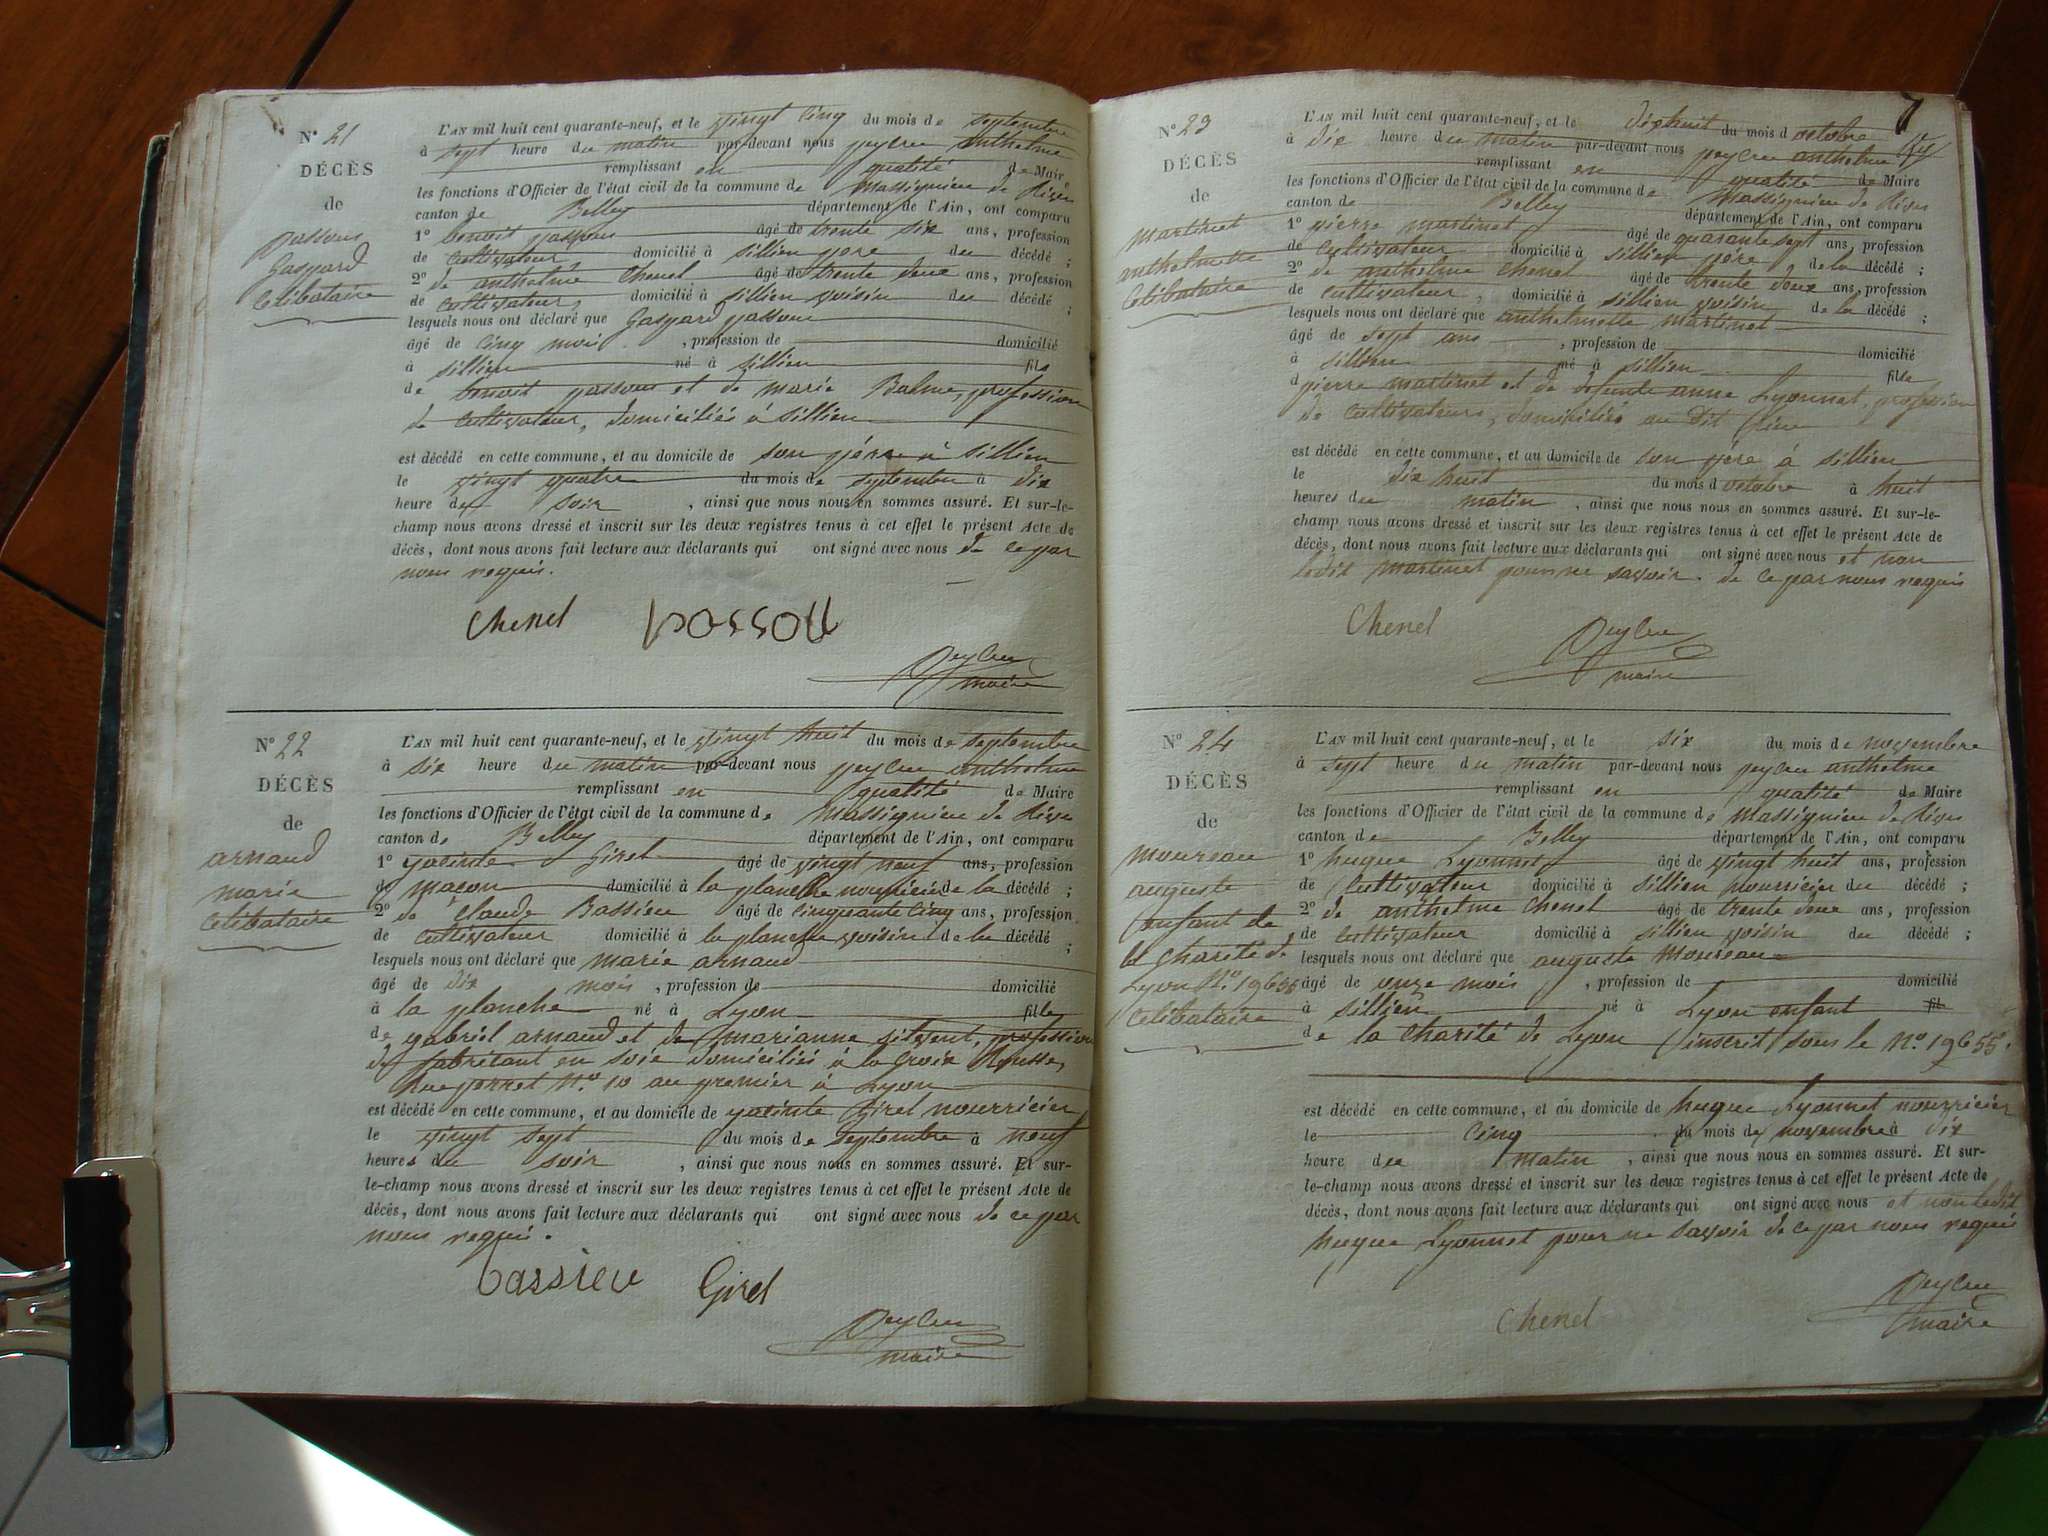 N° 21
DÉCÈS
de
passou
Gaspard
Celibataire
L'AN mil huit cent quarante-neuf, et le vingt cinq du mois de septembre
à sept heure du matin par-devant nous peyleu anthelme
remplissant en qualité de Maire
les fonctions d'Officier de l'état civil de la commune de Massignieu de Rives
canton de Belley département de l'Ain, ont comparu
1° benoit passou âgé de trente six ans, profession
de cultivateur domicilié à sillien père du décédé ;
2° de anthelme Chenel âgé de trente deux ans, profession
de cultivateur, domicilié à sillien voisin du décédé ;
lesquels nous ont déclaré que Gaspard passou
âgé de cinq mois , profession de domicilié
à sillien né à sillien fils
de benoit passou et de marie Balme, profession
de cultivateur, domiciliés à sillien
est décédé en cette commune, et au domicile de son père à sillien
le vingt quatre du mois de septembre à dix
heure du soir , ainsi que nous nous en sommes assuré. Et sur-le-
champ nous avons dressé et inscrit sur les deux registres tenus à cet effet le présent Acte de
décès, dont nous avons fait lecture aux déclarants qui ont signé avec nous de ce par
nous requis.
Chenel
Peyleu
maire
N° 22
DÉCÈS
de
arnaud
marie
Celibataire
L'AN mil huit cent quarante-neuf, et le vingt huit du mois de septembre
à six heure du matin par-devant nous peyleu anthelme
remplissant en qualité de Maire
les fonctions d'Officier de l'état civil de la commune de Massignieu de Rives
canton de Belley département de l'Ain, ont comparu
1° yacinte Girel âgé de vingt neuf ans, profession
de maçon domicilié à la planche nourricier de la décédé ;
2° de Claude Bassieu âgé de cinquante cinq ans, profession
de cultivateur domicilié à la planche voisin de la décédé ;
lesquels nous ont déclaré que marie arnaud
âgé de dix mois , profession de domicilié
à la planche né à Lyon fille
de gabriel arnaud et de marianne sitvent, profession
de fabricant en soie domiciliés à la Croix Rousse,
Rue perret N° 10 au premier à Lyon
est décédé en cette commune, et au domicile de yacinte Girel nourricier
le vingt sept du mois de septembre à neuf
heures du soir , ainsi que nous nous en sommes assuré. Et sur-
le-champ nous avons dressé et inscrit sur les deux registres tenus à cet effet le présent Acte de
décès, dont nous avons fait lecture aux déclarants qui ont signé avec nous de ce par
nous requis.
bassieu Girel
Peyleu
maire
7
N° 23
DÉCÈS
de
martinet
anthelmette
Celibataire
L'AN mil huit cent quarante-neuf, et le dixhuit du mois d octobre
à dix heure du matin par-devant nous peyleu anthelme
remplissant en qualité de Maire
les fonctions d'Officier de l'état civil de la commune de Massignieu de Rives
canton de Belley département de l'Ain, ont comparu
1° pierre martinet âgé de quarante sept ans, profession
de cultivateur domicilié à sillien père de la décédé ;
2° de anthelme Chenel âgé de trente deux ans, profession
de cultivateur, domicilié à sillien voisin de la décédé ;
lesquels nous ont déclaré que anthelmette martinet
âgé de sept ans , profession de domicilié
à sillien né à sillien fille
d pierre martinet et de defunte anne Lyonnet, profession
de cultivateurs, domiciliés au dit lieu
est décédé en cette commune, et au domicile de son père à sillien
le dix huit du mois d octobre à huit
heures du matin , ainsi que nous nous en sommes assuré. Et sur-le-
champ nous avons dressé et inscrit sur les deux registres tenus à cet effet le présent Acte de
décès, dont nous avons fait lecture aux déclarants qui ont signé avec nous et non
ledit martinet pour ne savoir. de ce par nous requis
Chenel
Peyleu
maire
N° 24
DÉCÈS
de
moureau
auguste
enfant de
la Charité de
Lyon N° 19655
Celibataire
L'AN mil huit cent quarante-neuf, et le six du mois de novembre
à sept heure du matin par-devant nous peyleu anthelme
remplissant en qualité de Maire
les fonctions d'Officier de l'état civil de la commune de Massignieu de Rives
canton de Belley département de l'Ain, ont comparu
1° hugue Lyonnet âgé de vingt huit ans, profession
de Cultivateur domicilié à sillien nourricier du décédé ;
2° de anthelme Chenel âgé de trente deux ans, profession
de cultivateur domicilié à sillien voisin du décédé ;
lesquels nous ont déclaré que auguste Moureau
âgé de onze mois , profession de domicilié
à sillien né à Lyon enfant fil
de la charité de Lyon inscrit sous le N° 19655.
est décédé en cette commune, et au domicile de hugue Lyonnet nourricier
le cinq du mois de novembre à dix
heure du matin , ainsi que nous nous en sommes assuré. Et sur-
le-champ nous avons dressé et inscrit sur les deux registres tenus à cet effet le présent Acte de
décès, dont nous avons fait lecture aux déclarants qui ont signé avec nous et non ledit
hugue Lyonnet pour ne savoir de ce par nous requis
Chenel
Peyleu
maire